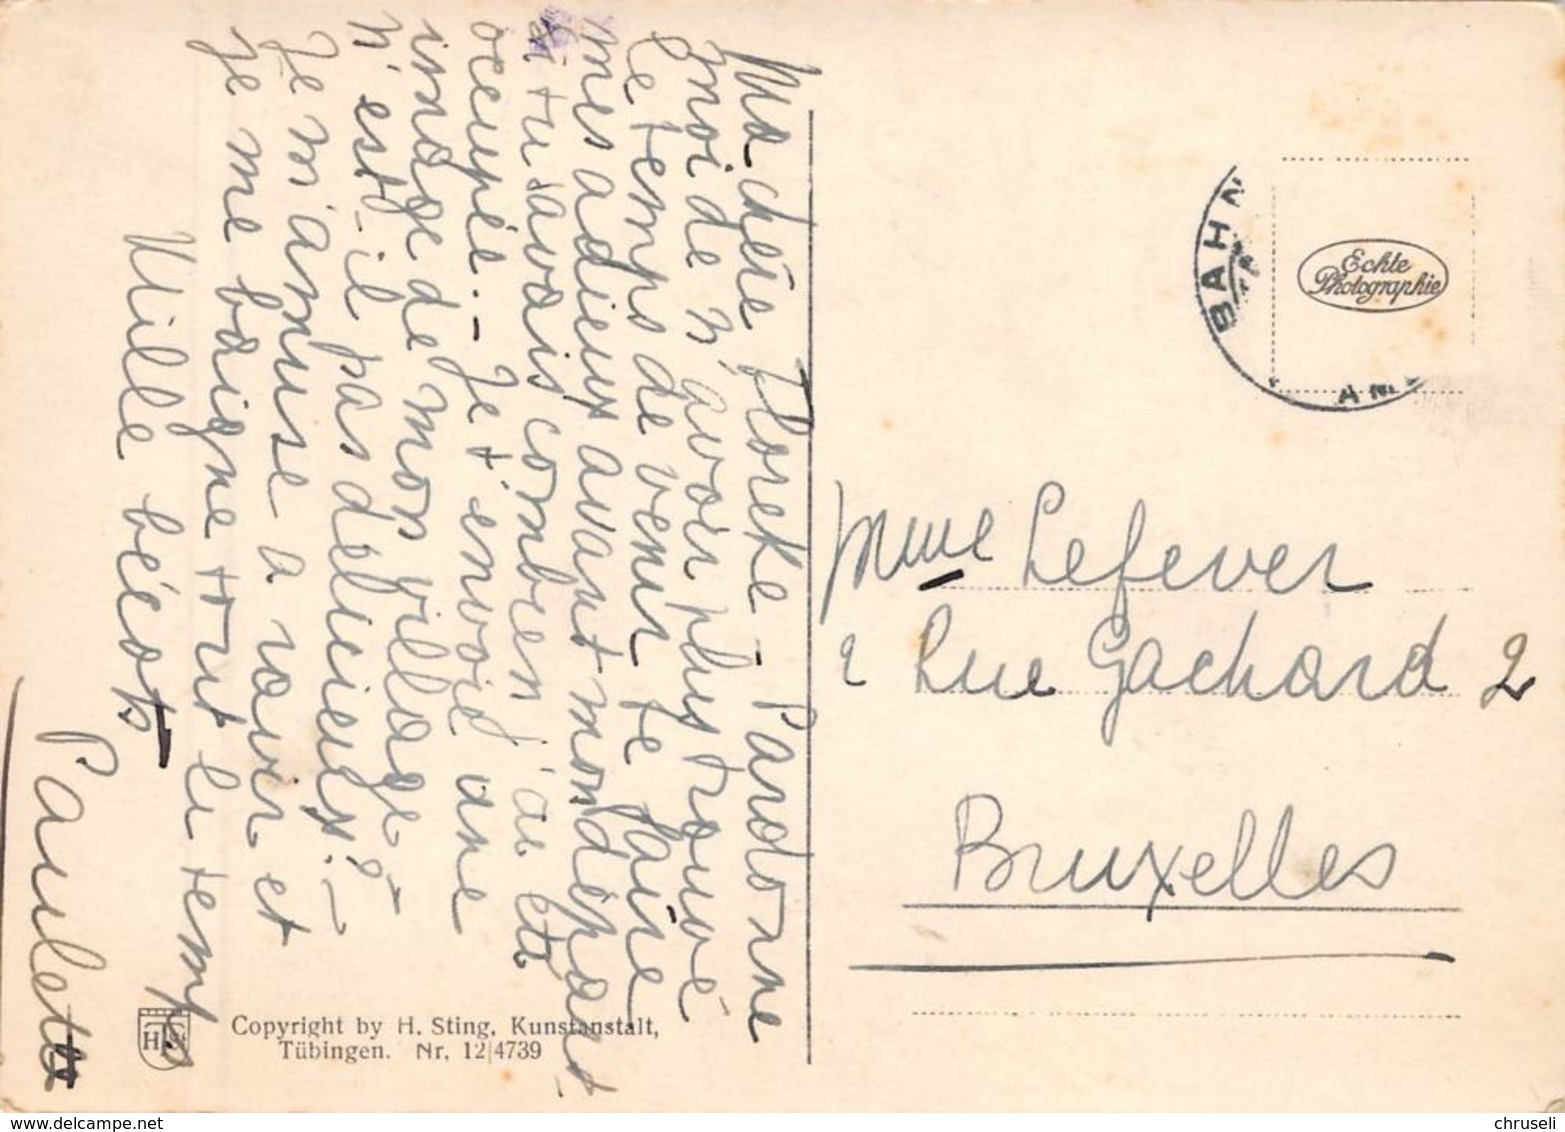 Ma chère Florette - Pardonne
moi de n'avoir plus trouvé
le temps de venir te faire
mes adieux avant mon départ
si tu savais combien j'ai été
occupée. - Je t'envoie une
image de mon village
n'est-il pas delicieux? -
Je m'amuse a ravir et
je me baigne tout le temps
Mille bécots
Paulette
Copyright by H. Sting, Kunstanstalt,
Tübingen. Nr. 12|4739
BAHN
Echte
Photographie
Mme Lefever
2 Rue Gachard 2
Bruxelles
chruseli